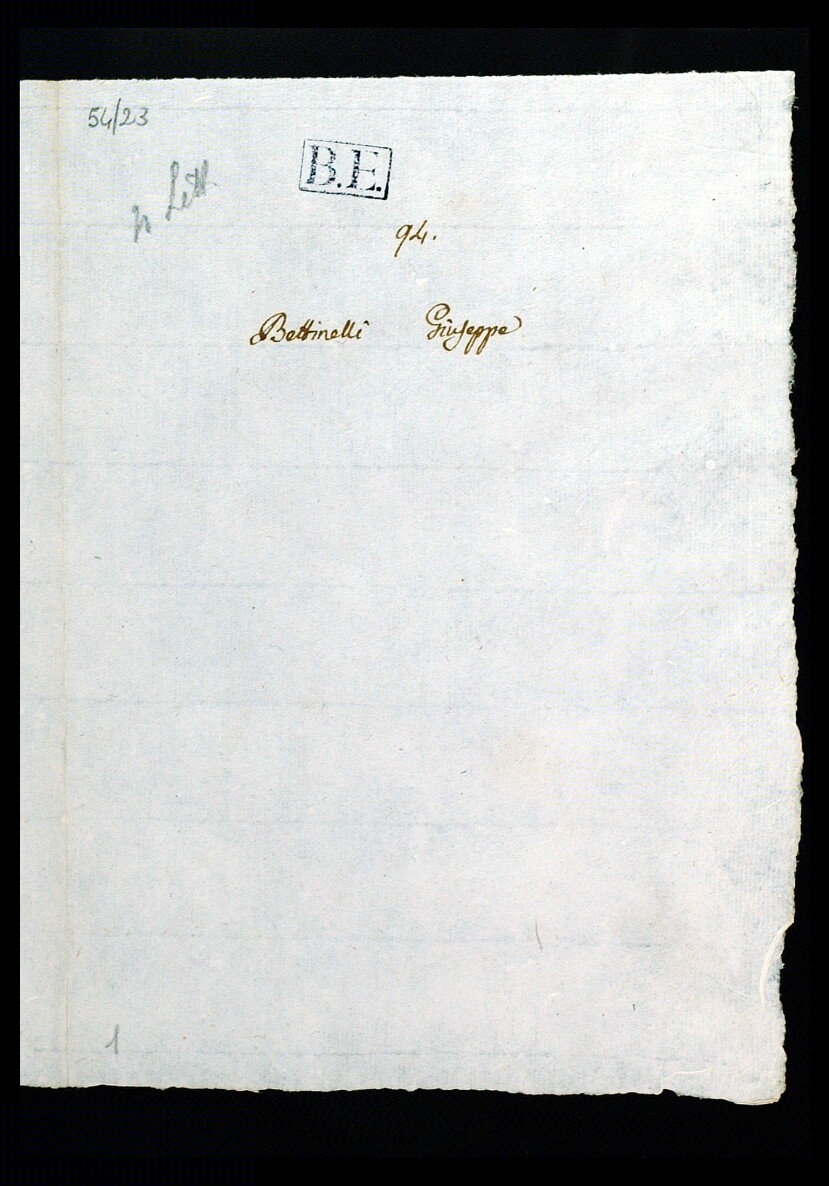 54/23
B.E.
Lett
94.
Bettinelli Giuseppe
1